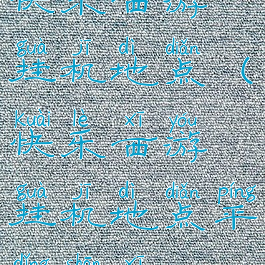 快乐西游
guà jī dì diǎn
挂机地点（
kuài lè xī yóu
快乐西游
guà jī dì diǎn píng
挂机地点平